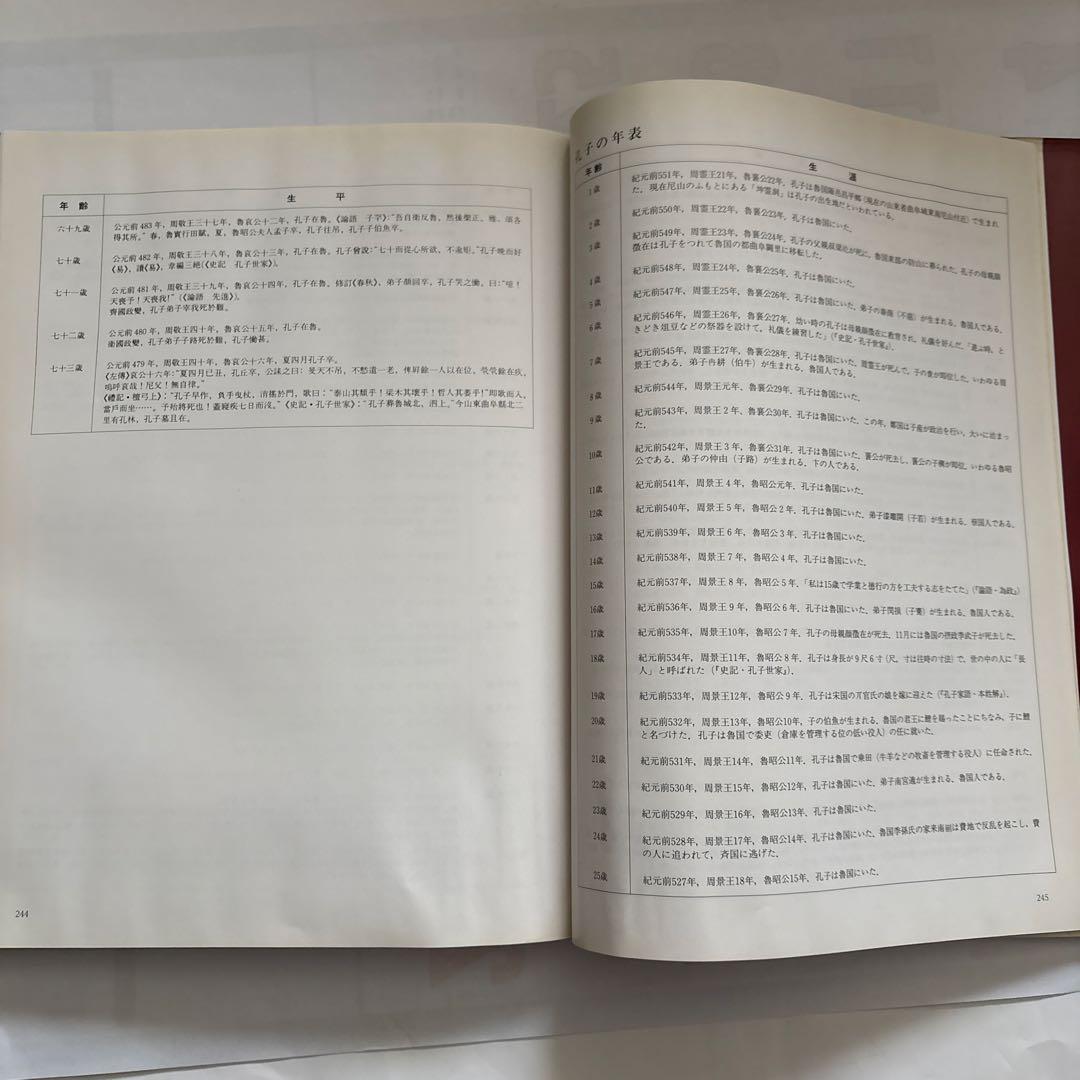 年 齡 生 平
六十九歲 公元前 483 年，周敬王三十七年，魯哀公十二年，孔子在魯。《論語 子罕》：“吾自衛反魯，然後樂正，雅、頌各
得其所。”春，魯實行田賦，夏，魯昭公夫人孟子卒，孔子往吊，孔子子伯魚卒。
七十歲 公元前 482 年，周敬王三十八年，魯哀公十三年，孔子在魯。孔子曾說：“七十而從心所欲，不逾矩。”孔子晚而好
《易》，讀《易》，韋編三絕(《史記 孔子世家》)。
七十一歲 公元前 481 年，周敬王三十九年，魯哀公十四年，孔子在魯。修訂《春秋》，弟子顏回卒，孔子哭之慟。曰：“噫！
天喪予！天喪我！”(《論語 先進》)。
齊國政變，孔子弟子宰我死於難。
七十二歲 公元前 480 年，周敬王四十年，魯哀公十五年，孔子在魯。
衛國政變，孔子弟子子路死於難，孔子慟甚。
七十三歲 公元前 479 年，周敬王四十年，魯哀公十六年，夏四月孔子卒。
《左傳》哀公十六年：“夏四月己丑，孔丘卒，公誄之曰：旻天不吊，不憖遺一老，俾屏餘一人以在位，煢煢餘在疚，
嗚呼哀哉！尼父！無自律。”
《禮記·檀弓上》：“孔子早作，負手曳杖，消搖於門，歌曰：“泰山其頹乎！梁木其壞乎！哲人其萎乎！”即歌而入，
當戶而坐……。予殆將死也！蓋寢疾七日而沒。”《史記·孔子世家》：“孔子葬魯城北，泗上。”今山東曲阜縣北二
里有孔林，孔子墓且在。
244
孔子の年表
年齢 生 涯
1歳 紀元前551年，周霊王21年，魯襄公22年．孔子は魯国陬邑昌平郷（現在の山東省曲阜城東南尼山付近）で生まれ
た．現在尼山のふもとにある「坤霊洞」は孔子の出生地だといわれている．
2歳 紀元前550年，周霊王22年，魯襄公23年．孔子は魯国にいた．
3歳 紀元前549年，周霊王23年，魯襄公24年．孔子の父親叔梁紇が死に，魯国東部の防山に葬られた．孔子の母親顔
徴在は孔子をつれて魯国の都曲阜闕里に移転した．
4歳 紀元前548年，周霊王24年，魯襄公25年．孔子は魯国にいた．
5歳 紀元前547年，周霊王25年，魯襄公26年．孔子は魯国にいた．弟子の秦商（不慈）が生まれる．魯国人である．
6歳 紀元前546年，周霊王26年，魯襄公27年．幼い時の孔子は母親顔徴在に教育され，礼儀を好んだ．「遊ぶ時，と
きどき俎豆などの祭器を設けて，礼儀を練習した」（『史記・孔子世家』）．
7歳 紀元前545年，周霊王27年，魯襄公28年．孔子は魯国にいた．周霊王が死んで，子の貴が即位した．いわゆる周
景王である．弟子冉耕（伯牛）が生まれる．魯国人である．
8歳 紀元前544年，周景王元年，魯襄公29年．孔子は魯国にいた．
9歳 紀元前543年，周景王2年，魯襄公30年．孔子は魯国にいた．この年，鄭国は子産が政治を行い，大いに治まっ
た．
10歳 紀元前542年，周景王3年，魯襄公31年．孔子は魯国にいた．襄公が死去し，襄公の子稠が即位．いわゆる魯昭
公である．弟子の仲由（子路）が生まれる．下の人である．
11歳 紀元前541年，周景王4年，魯昭公元年．孔子は魯国にいた．
12歳 紀元前540年，周景王5年，魯昭公2年．孔子は魯国にいた．弟子漆雕開（子若）が生まれる．蔡国人である．
13歳 紀元前539年，周景王6年，魯昭公3年．孔子は魯国にいた．
14歳 紀元前538年，周景王7年，魯昭公4年．孔子は魯国にいた．
15歳 紀元前537年，周景王8年，魯昭公5年．「私は15歳で学業と徳行の方を工夫する志をたてた」（『論語・為政』）
16歳 紀元前536年，周景王9年，魯昭公6年．孔子は魯国にいた．弟子閔損（子騫）が生まれる．魯国人である．
17歳 紀元前535年，周景王10年，魯昭公7年．孔子の母親顔徴在が死去．11月には魯国の摂政季武子が死去した．
18歳 紀元前534年，周景王11年，魯昭公8年．孔子は身長が9尺6寸（尺，寸は往時の寸法）で，世の中の人に「長
人」と呼ばれた（『史記・孔子世家』）．
19歳 紀元前533年，周景王12年，魯昭公9年．孔子は宋国の亓官氏の娘を嫁に迎えた（『孔子家語・本姓解』）．
20歳 紀元前532年，周景王13年，魯昭公10年，子の伯魚が生まれる．魯国の君王に鯉を賜ったことにちなみ，子に鯉
と名づけた．孔子は魯国で委吏（倉庫を管理する位の低い役人）の任に就いた．
21歳 紀元前531年，周景王14年，魯昭公11年．孔子は魯国で乗田（牛羊などの牧畜を管理する役人）に任命された．
22歳 紀元前530年，周景王15年，魯昭公12年，孔子は魯国にいた．弟子南宮适が生まれる．魯国人である．
23歳 紀元前529年，周景王16年，魯昭公13年，孔子は魯国にいた．
24歳 紀元前528年，周景王17年，魯昭公14年，孔子は魯国にいた．魯国季孫氏の家来南蒯は費地で反乱を起こし，費
の人に追われて，斉国に逃げた．
25歳 紀元前527年，周景王18年，魯昭公15年，孔子は魯国にいた．
245